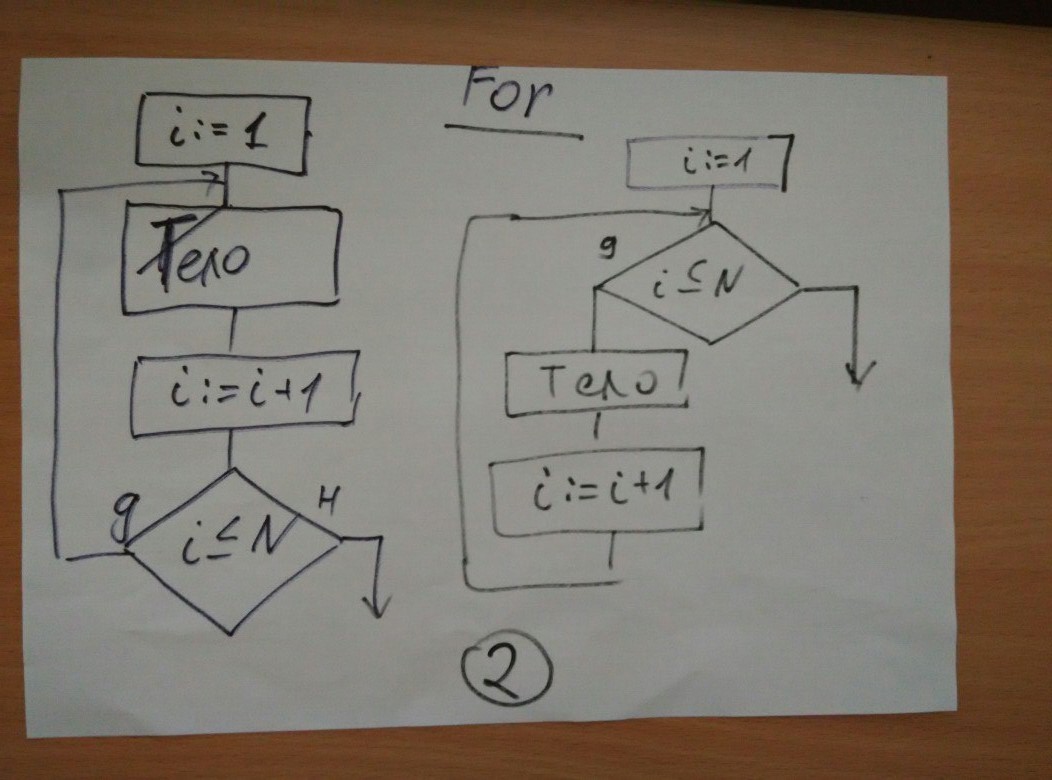 For
i:=1
Тело
i:=i+1
i≤N
g
н
i:=1
i≤N
g
Тело
i:=i+1
2